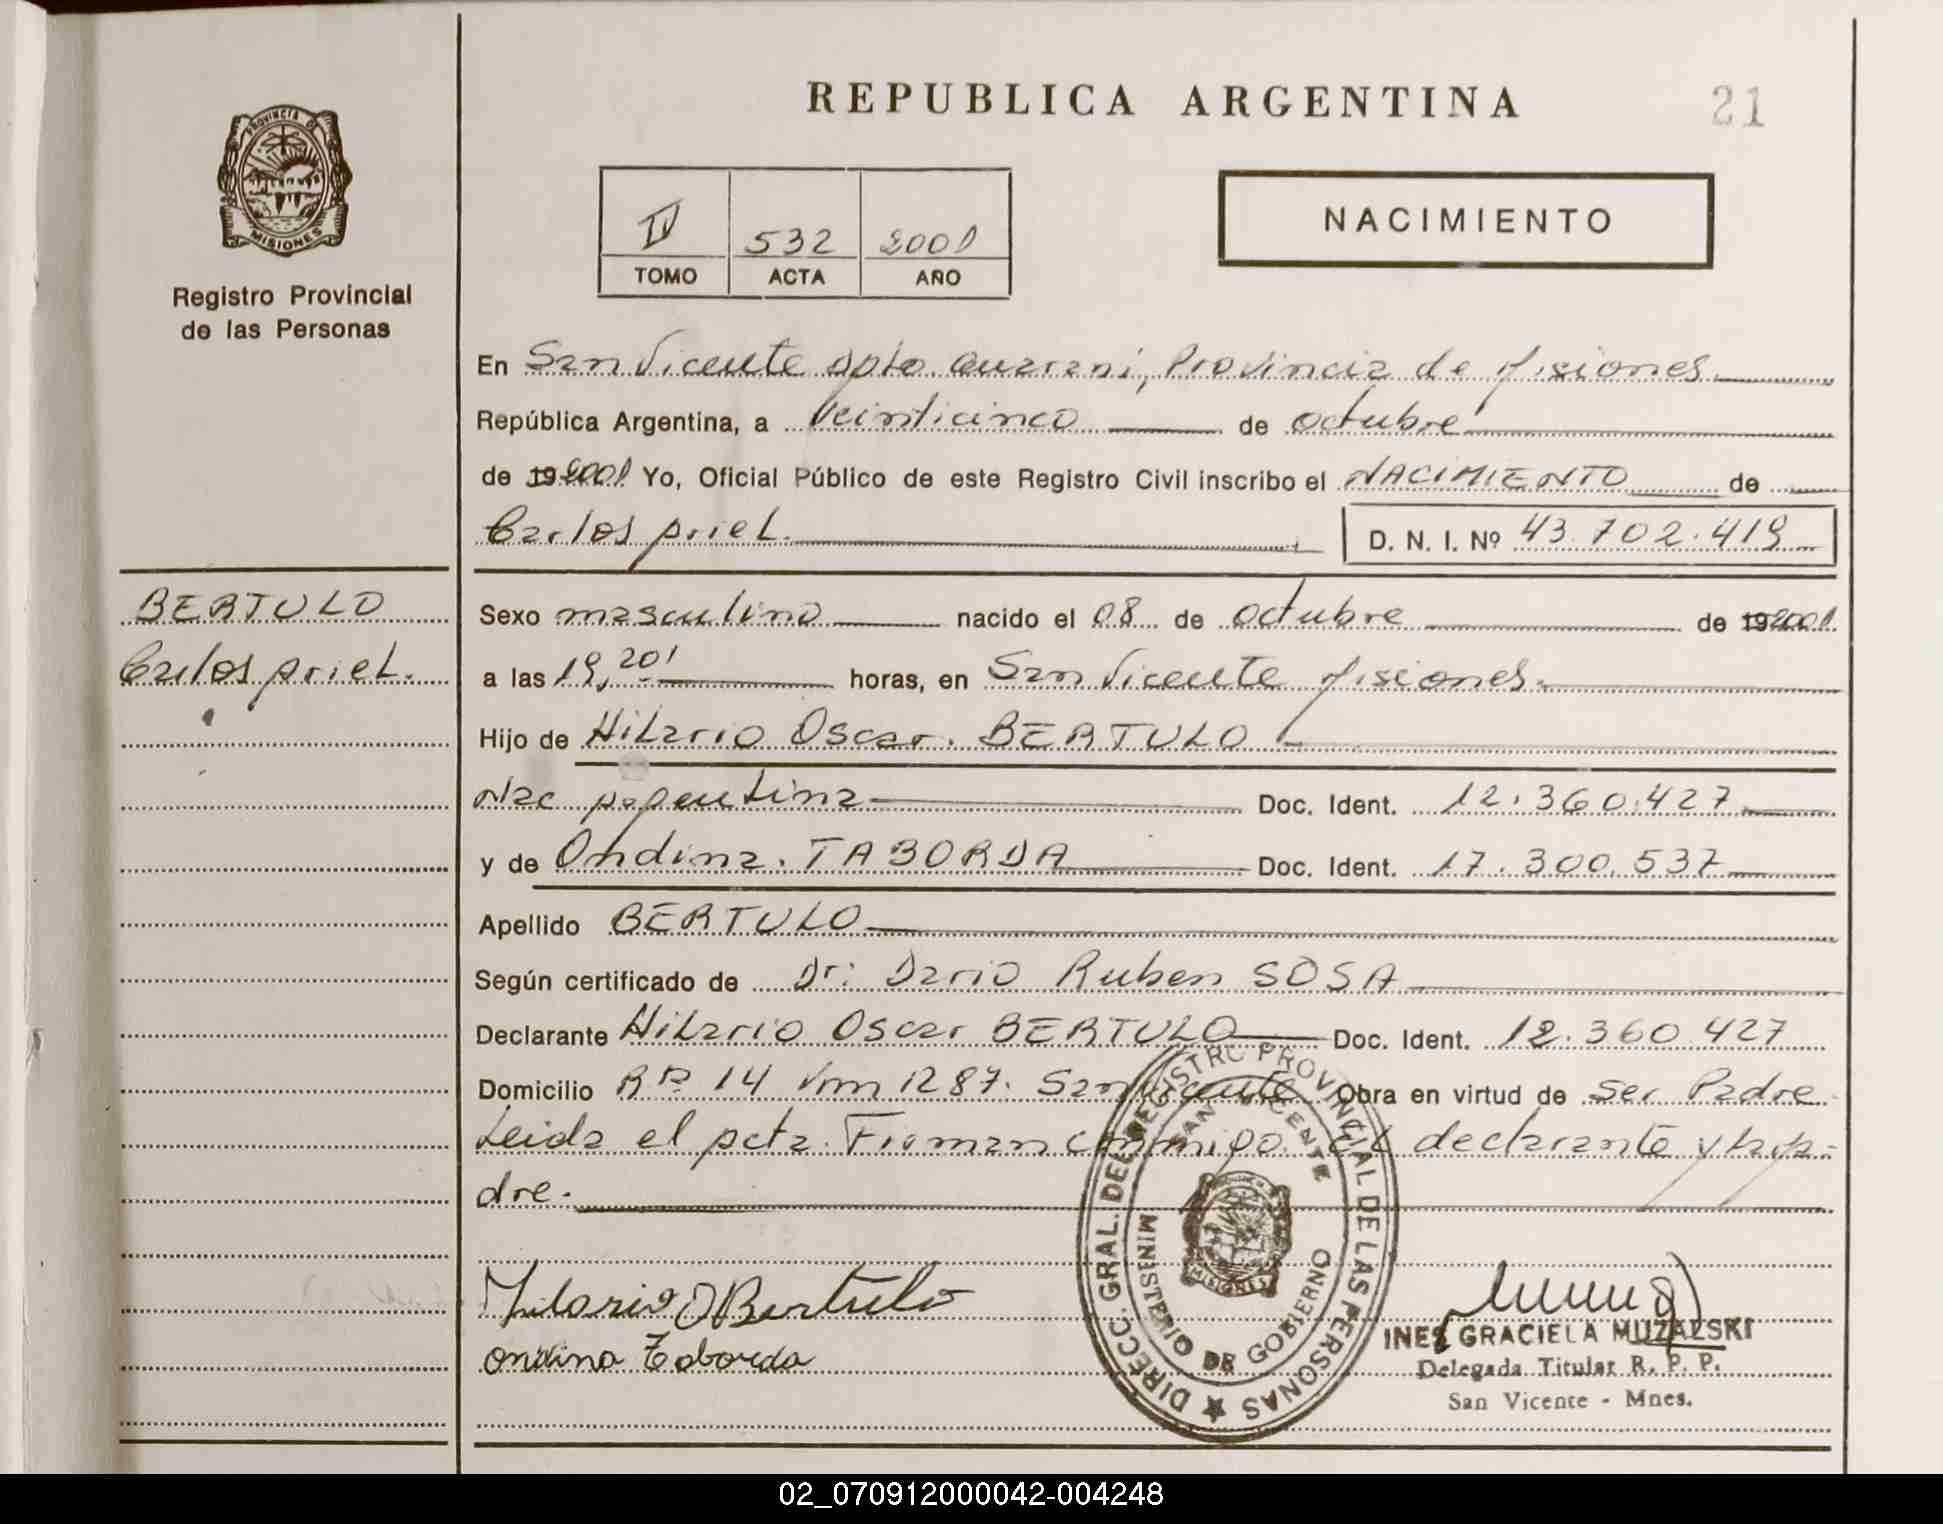 REPUBLICA ARGENTINA
21
PROVINCIA D
MISIONES
Registro Provincial
de las Personas
IV 532 2001
TOMO ACTA AÑO
NACIMIENTO
En San Vicente Dpto. Guarani, Provincia de Misiones.
República Argentina, a Veinticinco de octubre
de 19 2001 Yo, Oficial Público de este Registro Civil inscribo el NACIMIENTO de
Carlos Ariel.
D. N. I. Nº 43.702.419
BERTULO
Carlos Ariel.
Sexo masculino nacido el 08 de octubre de 19 2001
a las 19,20' horas, en San Vicente Misiones.
Hijo de Hilario Oscar. BERTULO
Nac Argentina Doc. Ident. 12.360.427
y de Ondina. TABORDA Doc. Ident. 17.300.537
Apellido BERTULO
Según certificado de Dr: Dario Ruben SOSA
Declarante Hilario Oscar BERTULO Doc. Ident. 12.360.427
Domicilio 14 Km 1287. San Vicente Obra en virtud de ser Padre
Leida el acta. Firman conmigo. el declarante y la ma-
dre.
DIRECC. GRAL. DEL REGISTRO PROVINCIAL DE LAS PERSONAS
SAN VICENTE
MINISTERIO DE GOBIERNO
MISIONES
Hilario O Bertulo
Ondina Taborda
INES GRACIELA MUZALSKI
Delegada Titular R. P. P.
San Vicente - Mnes.
02_070912000042-004248